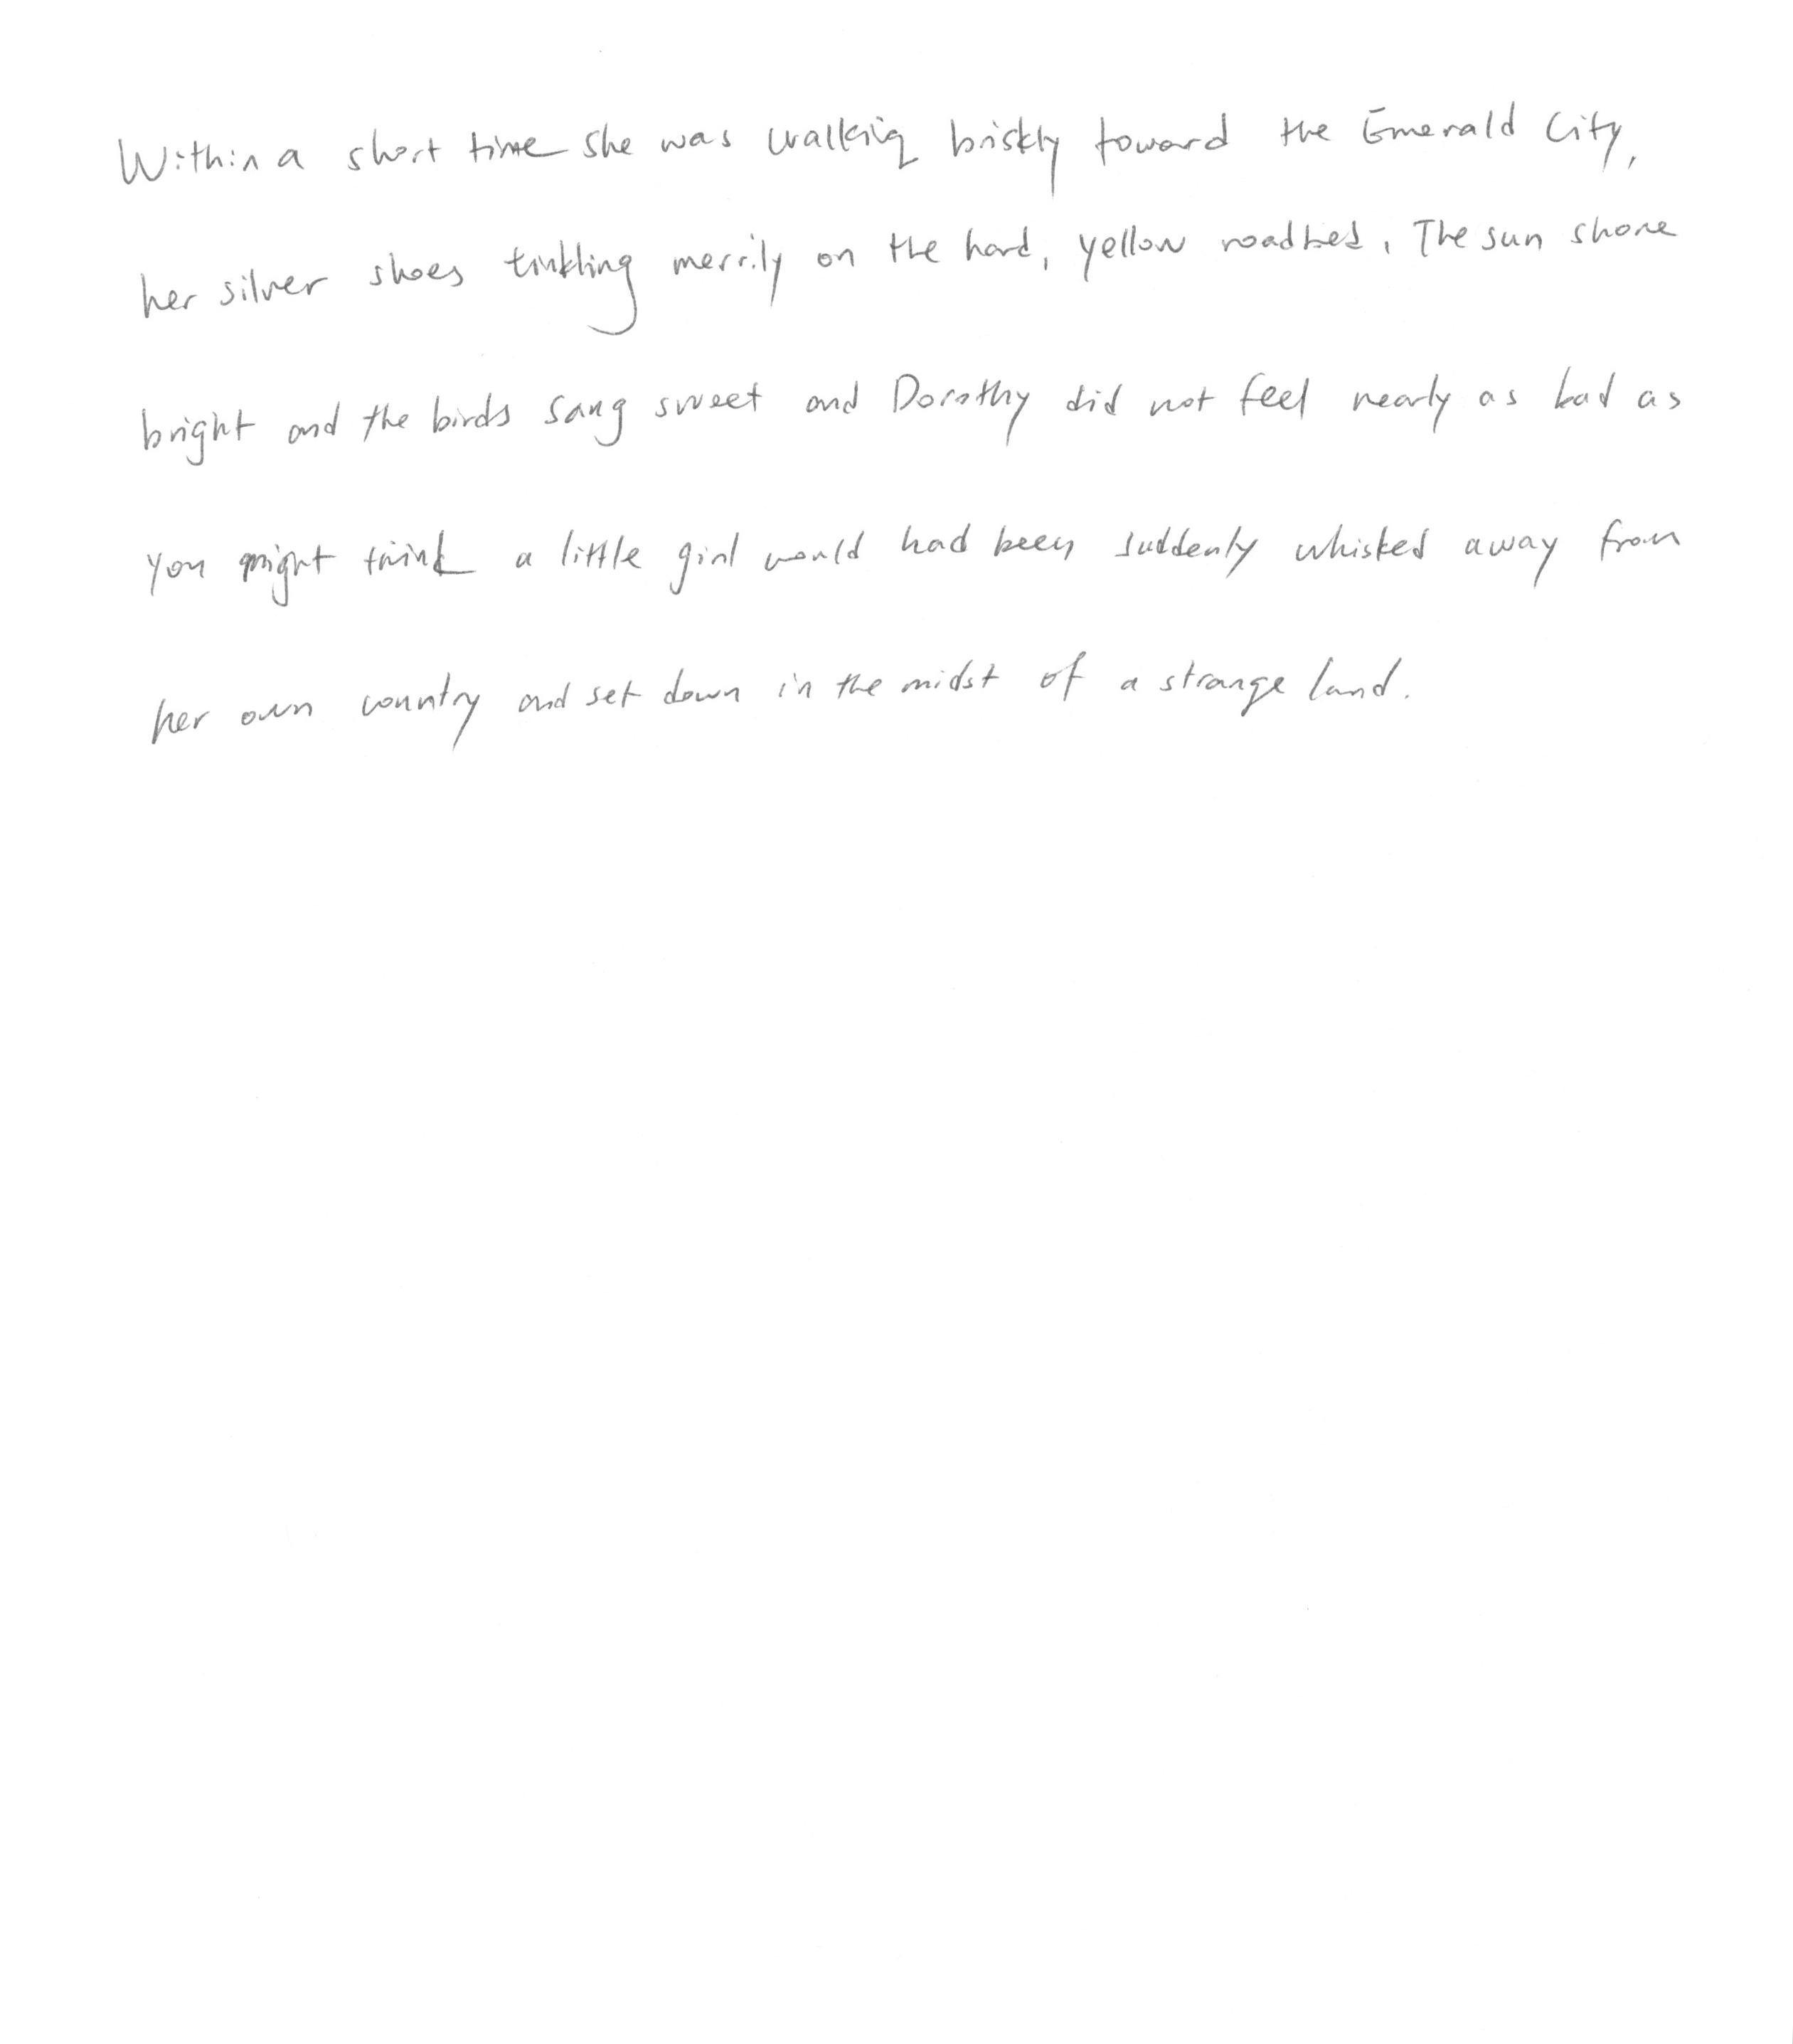 Within a short time she was walking briskly toward the Emerald City,
her silver shoes tinkling merrily on the hard, yellow roadbed. The sun shone
bright and the birds sang sweet and Dorothy did not feel nearly as bad as
you might think a little girl would had been suddenly whisked away from
her own country and set down in the midst of a strange land.